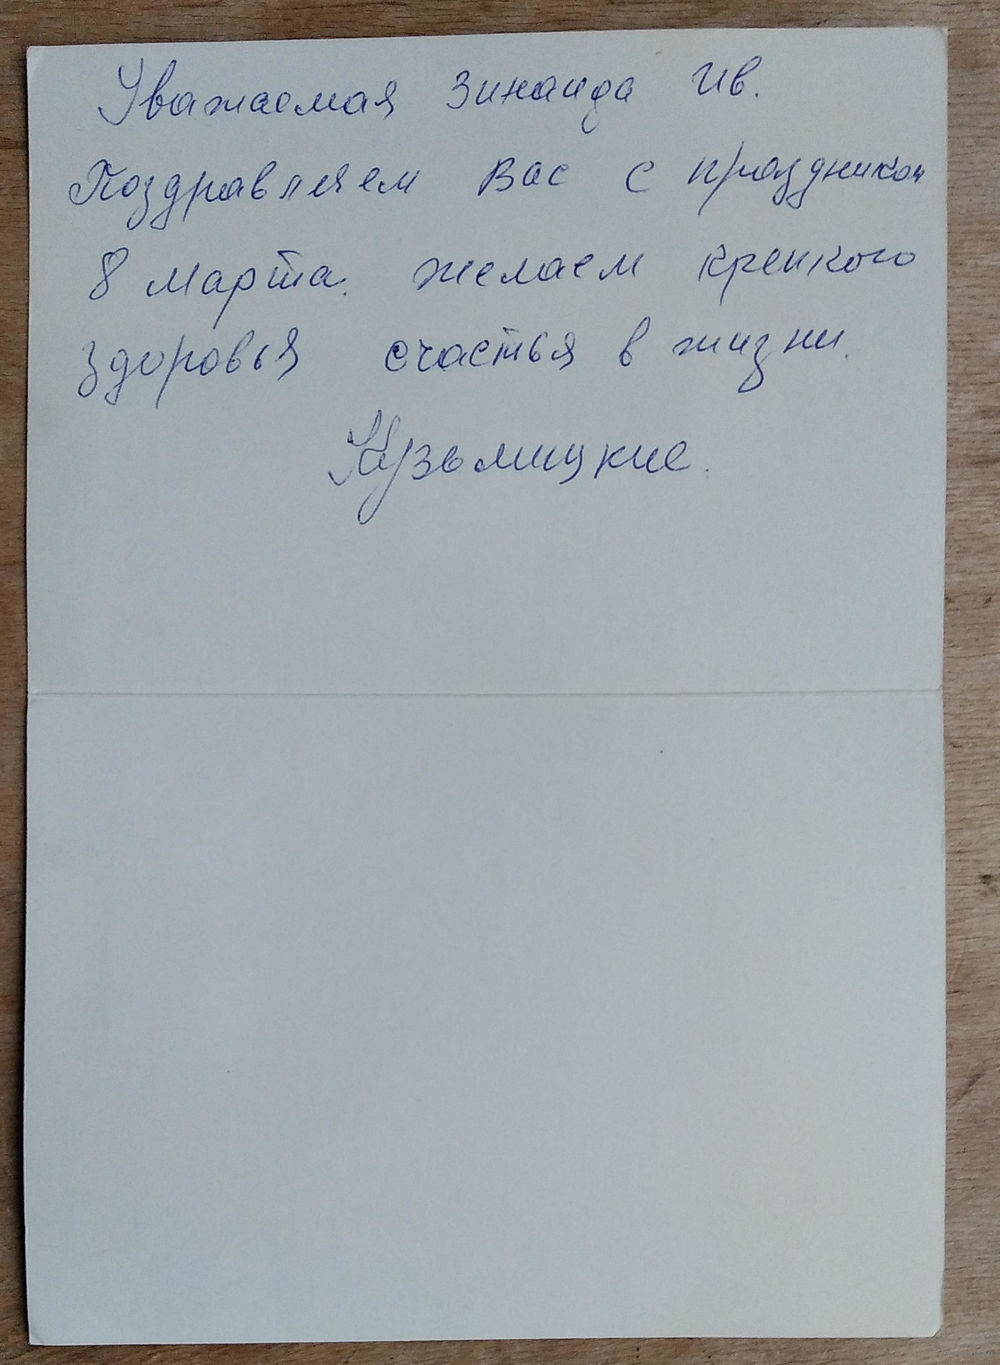 Уважаемая Зинаида Ив.
Поздравляем Вас с праздником
8 марта. желаем крепкого
здоровья счастья в жизни.
Кузьмицкие.